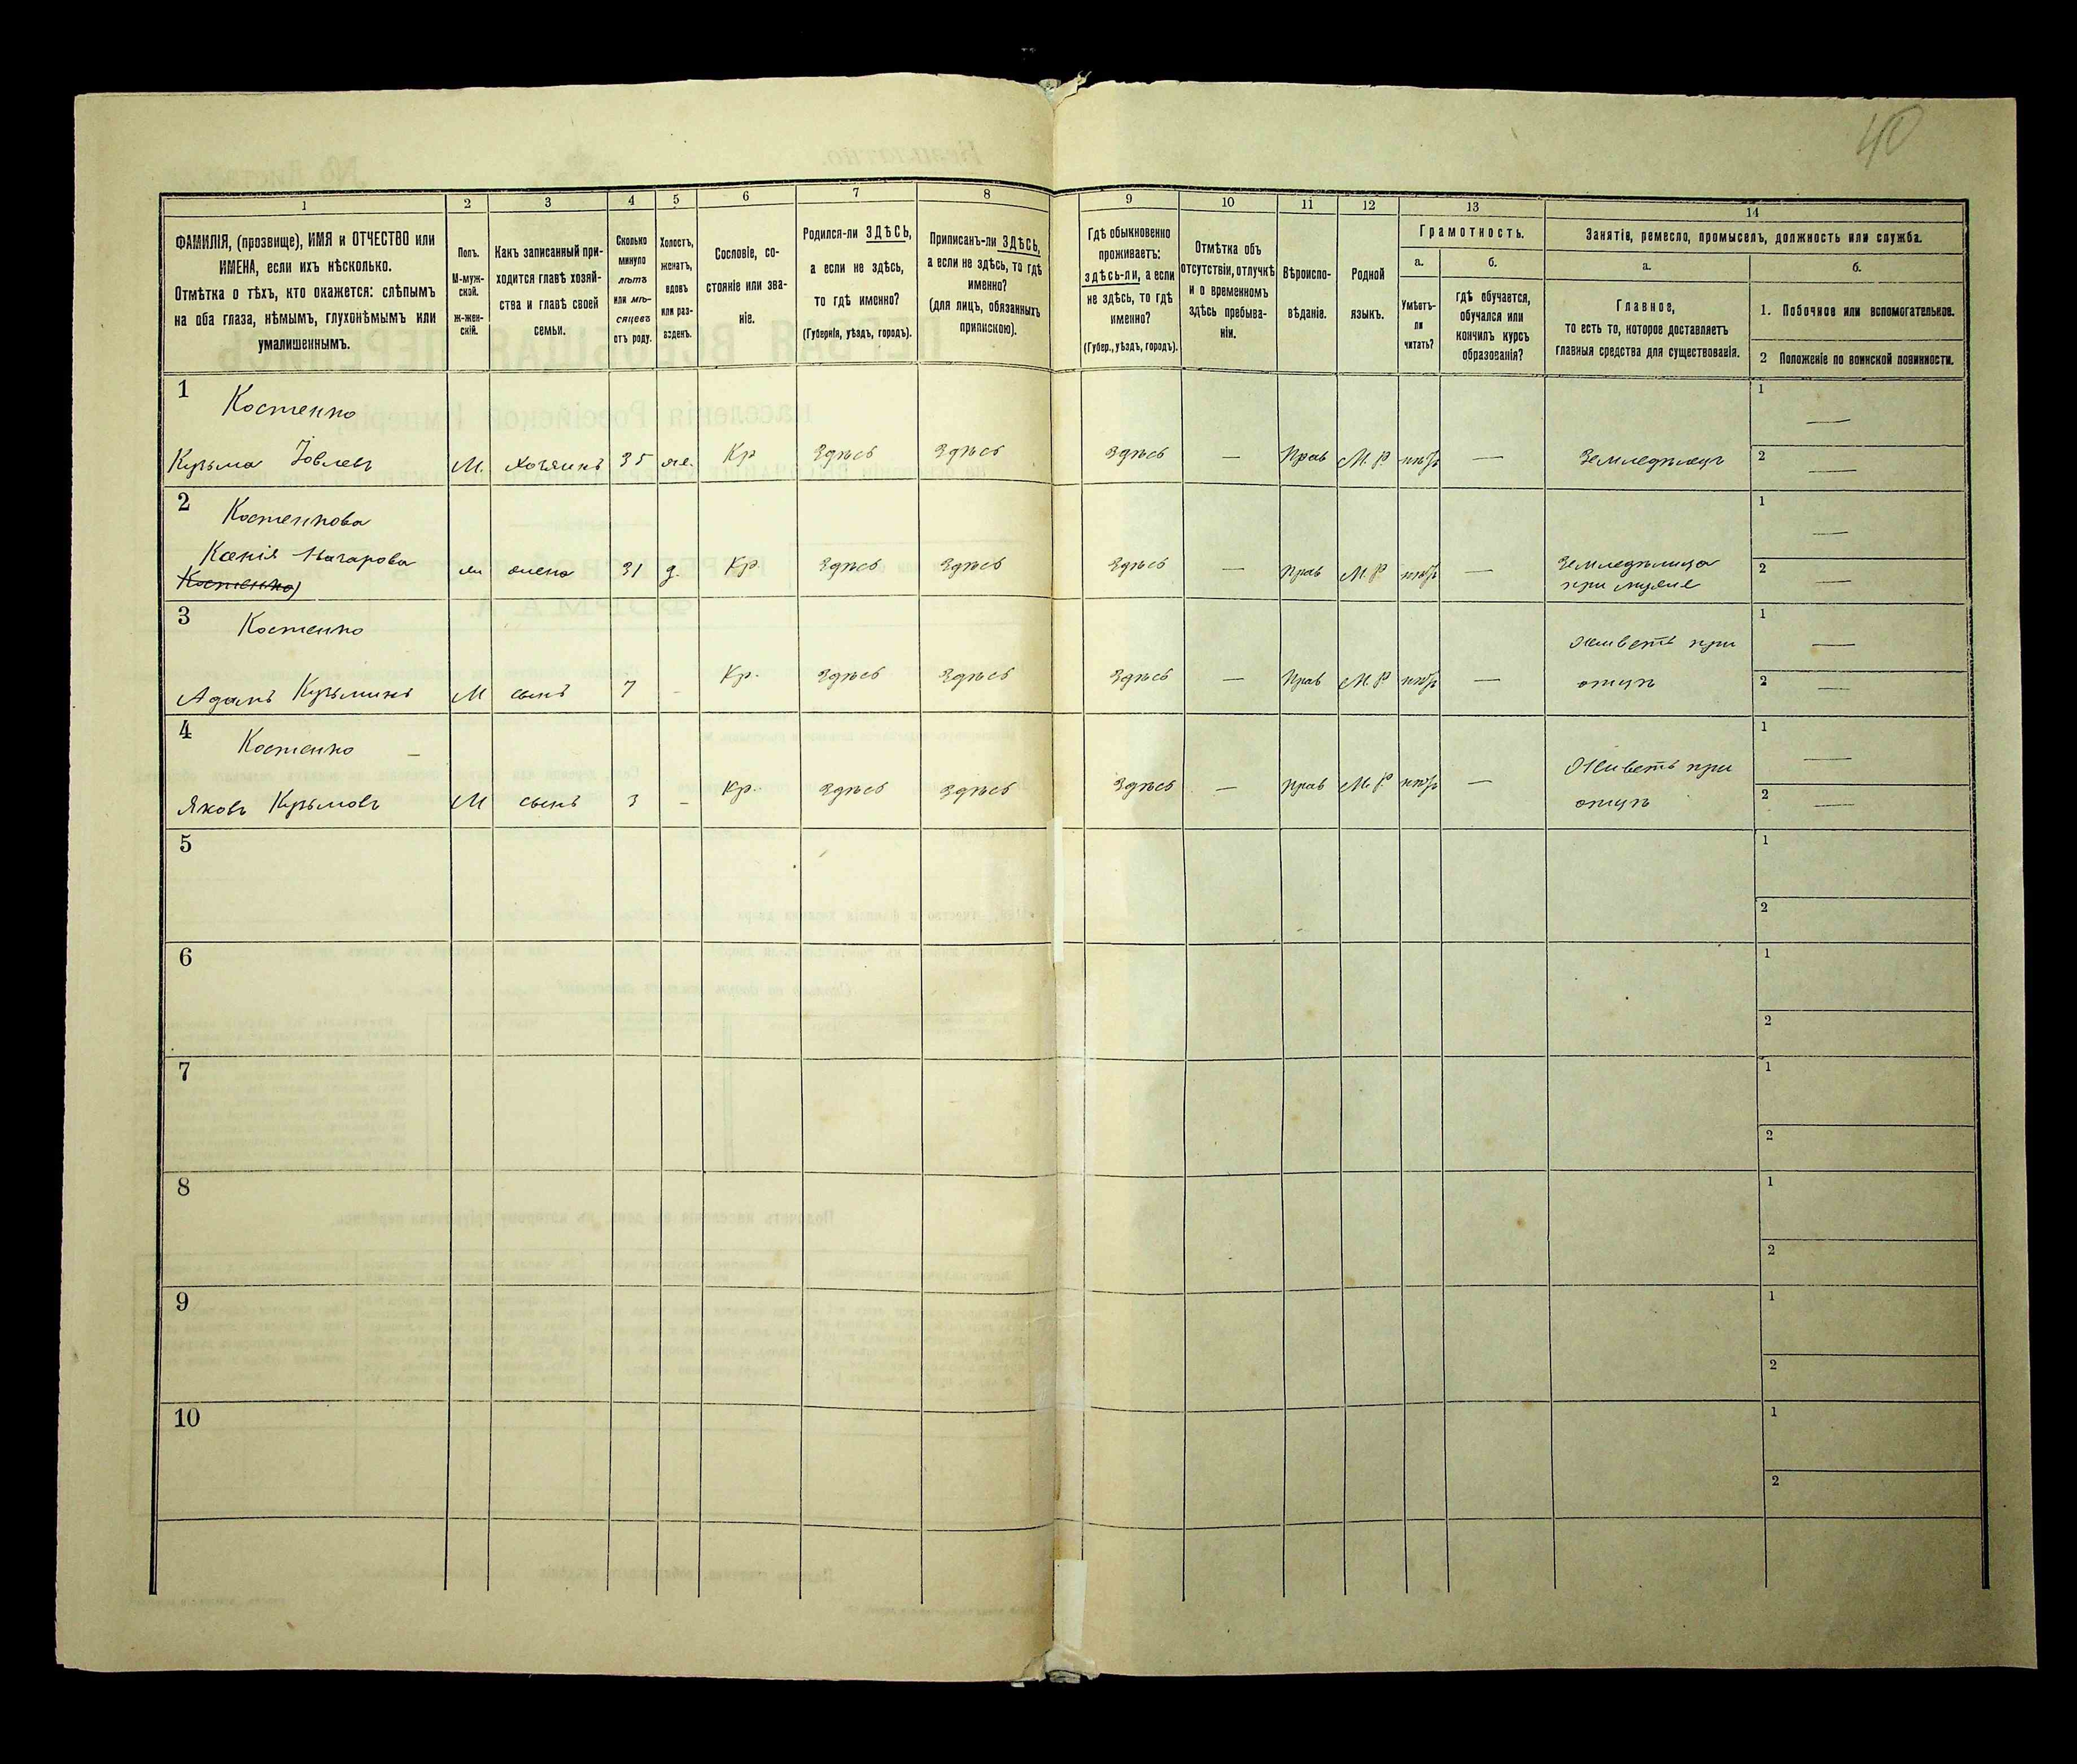 40
1 2 3 4 5 6 7 8 9 10 11 12 13 14
ФАМИЛІЯ, (прозвище), ИМЯ и ОТЧЕСТВО или
ИМЕНА, если ихъ нѣсколько.
Отмѣтка о тѣхъ, кто окажется: слѣпымъ
на оба глаза, нѣмымъ, глухонѣмымъ или
умалишеннымъ.
Полъ.
М-муж-
ской.
Ж-жен-
скій.
Какъ записанный при-
ходится главѣ хозяй-
ства и главѣ своей
семьи.
Сколько
минуло
лѣтъ
или мѣ-
сяцевъ
отъ роду.
Холостъ,
женатъ,
вдовъ
или раз-
веденъ.
Сословіе, со-
стояніе или зва-
ніе.
Родился-ли ЗДѢСЬ,
а если не здѣсь,
то гдѣ именно?
(Губернія, уѣздъ, городъ).
Приписанъ-ли ЗДѢСЬ,
а если не здѣсь, то гдѣ
именно?
(для лицъ, обязанныхъ
припискою).
Гдѣ обыкновенно
проживаетъ:
здѣсь-ли, а если
не здѣсь, то гдѣ
именно?
(Губер., уѣздъ, городъ).
Отмѣтка объ
отсутствіи, отлучкѣ
и о временномъ
здѣсь пребыва-
ніи.
Вѣроиспо-
вѣданіе.
Родной
языкъ.
Грамотность.
а.
Умѣетъ-
ли
читать?
б.
гдѣ обучается,
обучался или
кончилъ курсъ
образованія?
Занятіе, ремесло, промыселъ, должность или служба.
а.
Главное,
то есть то, которое доставляетъ
главныя средства для существованія.
б.
1. Побочное или вспомогательное.
2 Положеніе по воинской повинности.
1 Костенко 1 —
Кузьма Іовлевъ М. хозяинъ 35 же. Кр Здѣсь Здѣсь Здѣсь — Прав М. Р. — Земледѣлецъ 2 —
2 Костенкова 1 —
Ксенія Назарова жена 31 Кр. Здѣсь Здѣсь Здѣсь — Прав М. Р. — Земледѣлица 2 —
Костенко при мужѣ
3 Костенко Живетъ при 1 —
Адамъ Кузьминъ М сынъ 7 - Кр. Здѣсь Здѣсь Здѣсь — Прав М. Р. — отцѣ 2 —
4 Костенко — Живетъ при 1 —
Яковъ Кузьмовъ М сынъ 3 - Кр. Здѣсь Здѣсь Здѣсь — Прав М. Р. — отцѣ 2 —
5 1
2
6 1
2
7 1
2
8 1
2
9 1
2
10 1
2